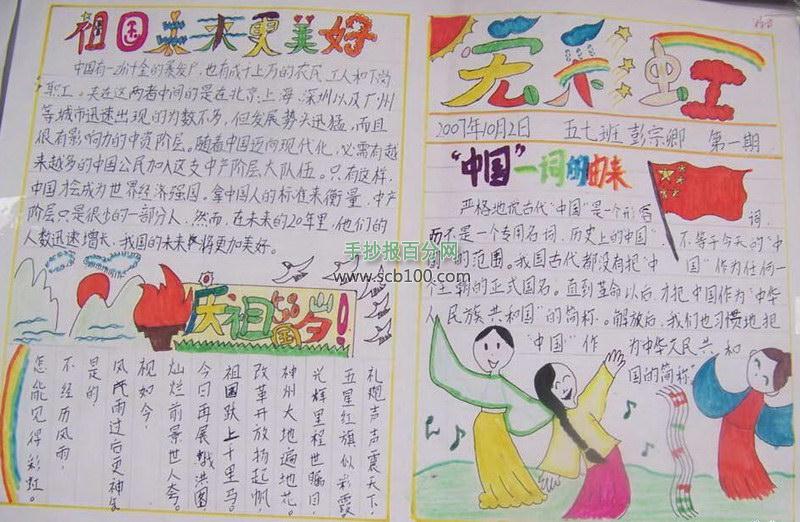 祖国未来更美好
中国有一小撮金的暴发户,也有成千上万的农民、工人和下岗
职工。夹在这两者中间的是在北京、上海、深圳以及广州
等城市迅速出现的为数不多,但发展势头迅猛,而且
很有影响力的中资阶层。随着中国迈向现代化,必需有越
来越多的中国公民加入这支中产阶层大队伍。只有这样,
中国才会成为世界经济强国。拿中国人的标准来衡量,中产
阶层只是很少的一部分人,然而,在未来的20年里,他们的
人数迅速增长,我国的未来终将更加美好。
庆祖国岁!
礼炮声声震天下,
五星红旗似彩霞
光辉里程世瞩目,
神州大地遍地花。
改革开放扬起帆
祖国跃上千里马。
今日再展鸿图
灿烂前景世人夸。
视如今,
风风雨雨过后更神
是的,
不经历风雨,
怎能见得彩虹。
七天彩虹
2007年10月2日 五七班 彭宗卿 第一期
"中国"一词的由来
严格地说古代"中国"是一个形容词,
而不是一个专用名词,历史上的"中国"不等于今天的"中
国"的范围。我国古代都没有把"中国"作为任何一
个王朝的正式国名。直到革命以后,才把中国作为"中华
人民族共和国"的简称。解放后,我们也习惯地把
"中国"作为中华人民共和
国的简称"
手抄报百分网
www.scb100.com